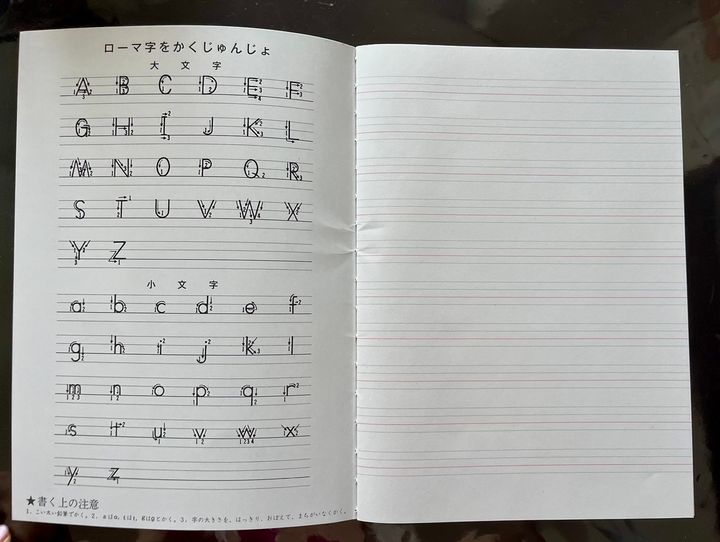 ローマ字をかくじゅんじょ
大文字
A B C D E F
G H I J K L
M N O P Q R
S T U V W X
Y Z
小文字
a b c d e f
g h i j k l
m n o p q r
s t u v w x
y z
★書く上の注意
1. こい太い鉛筆でかく。2. aはɑ, tはt, gはgとかく。3. 字の大きさを、はっきり、おぼえて、まちがいなくかく。